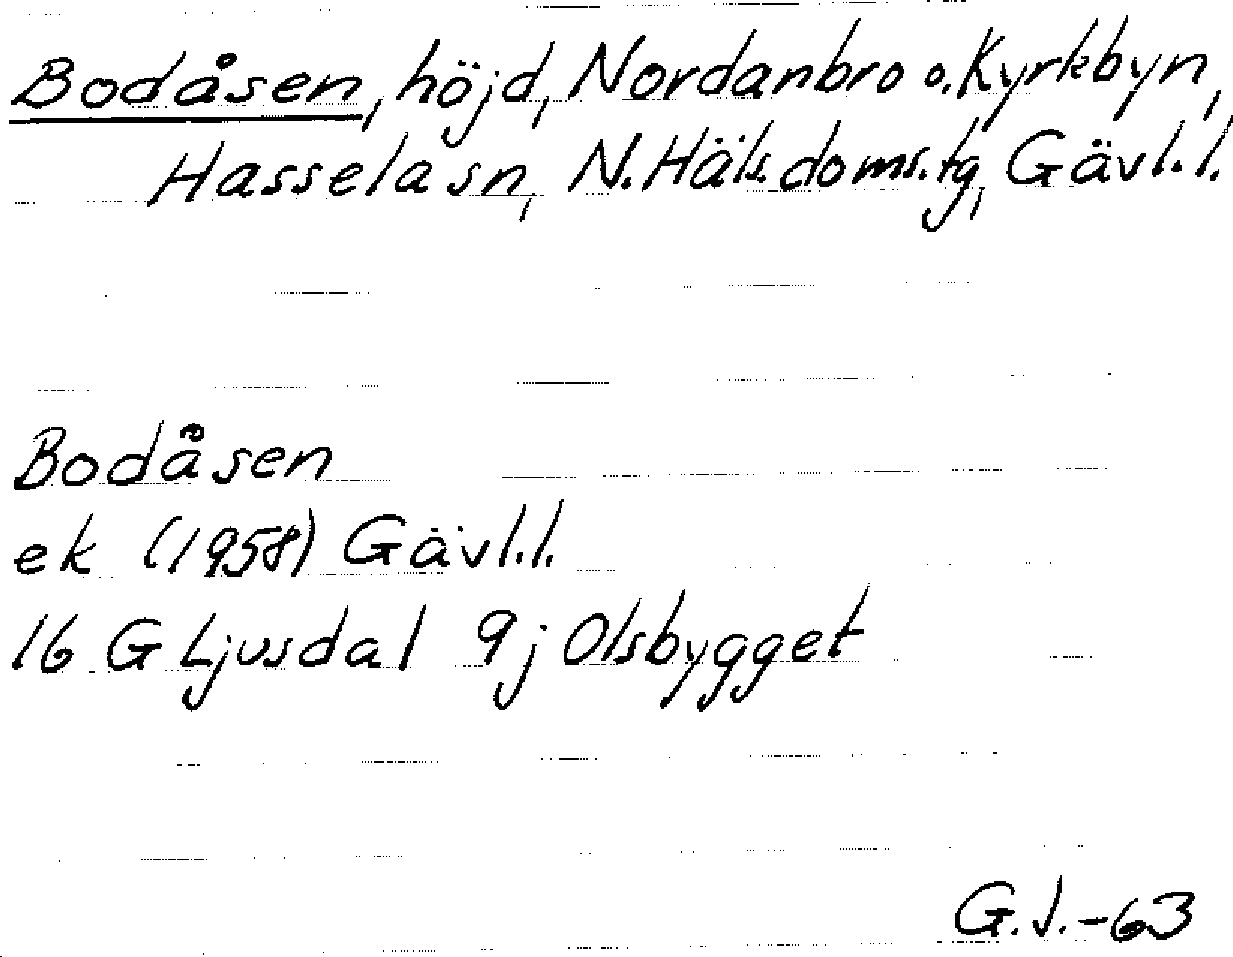 Bodåsen, höjd, Nordanbro o. Kyrkbyn,
Hassela sn, N. Häls. doms. tg, Gävl.l.
Bodåsen
ek (1958) Gävl.l.
16 G Ljusdal 9j Olsbygget
G.J.-63